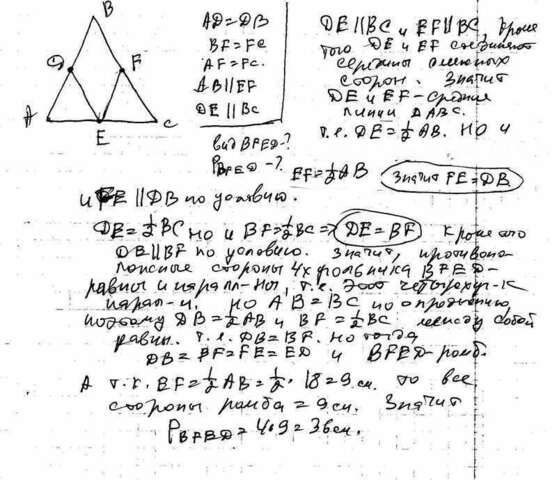 B
D
F
A
E
C
AD=DB
BF=FC
AF=FC.
AB∥EF
DE∥BC
вид BFED-?
P BFED -?
DE∥BC и EF∥BC, кроме
того DE и EF соединяют
середины смежных
сторон. Значит
DE и EF - средние
линии ΔABC.
т.е. DE=½AB. но и
EF=½AB
Значит FE=DB
и FE∥DB по условию.
DE=½BC но и BF=½BC => DE=BF Кроме того
DE∥BF по условию. Значит, противопо-
ложные стороны 4х угольника BFED-
равны и паралл-ны, т.е. этот четырехуг-к
парал-м. но AB=BC по определению,
поэтому DB=½AB и BF=½BC между собой
равны. т.е. DB=BF. но тогда
DB=BF=FE=ED и BFED-ромб.
А т.к. EF=½AB=½·18=9см. то все
стороны ромба=9см. Значит
P BFED=4·9=36см.